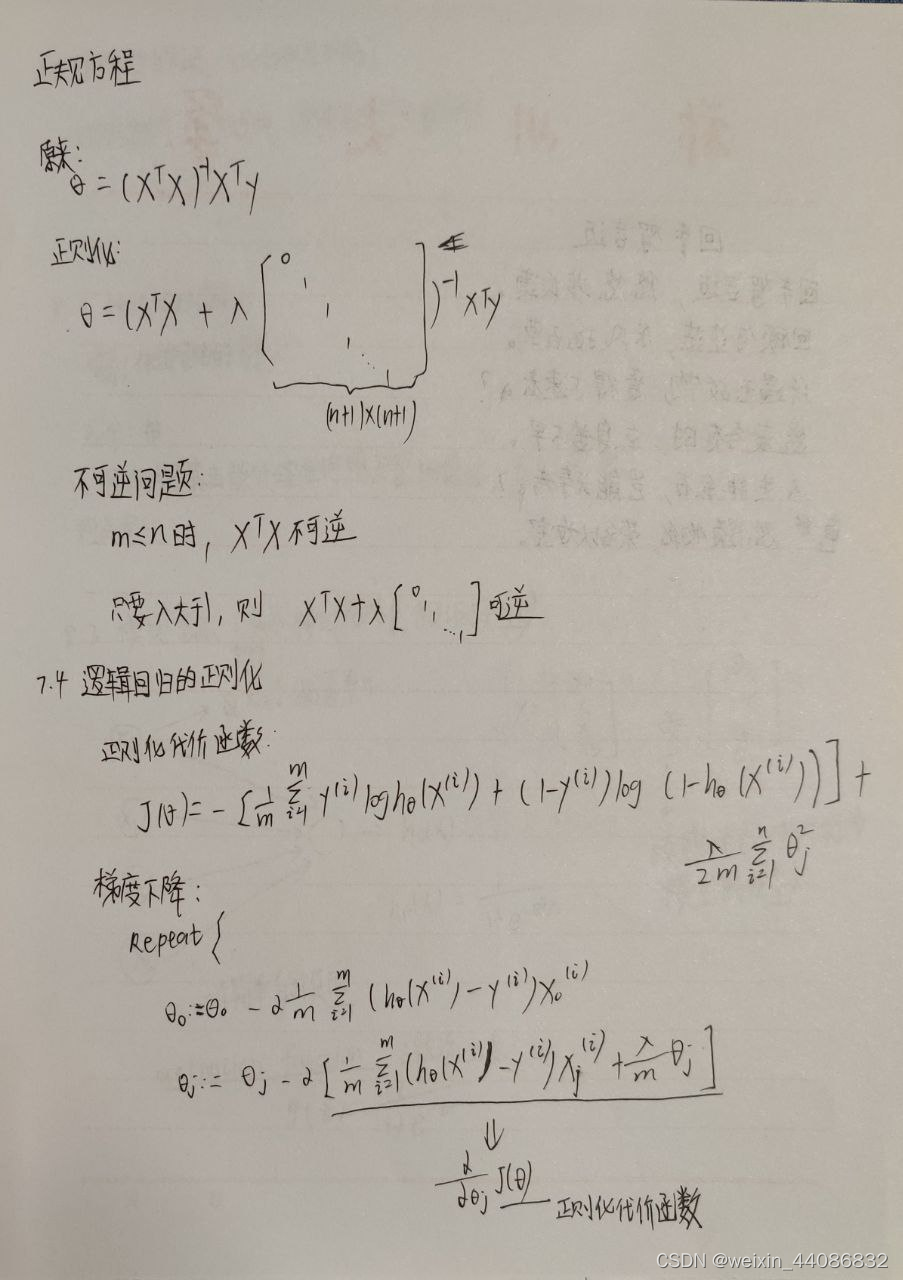 正规方程
原来:
θ = (XᵀX)⁻¹Xᵀy
正则化:
θ = (XᵀX + λ [0 1 1 1 ⋱ 1])⁻¹ Xᵀy
(n+1)×(n+1)
不可逆问题:
m≤n时, XᵀX 不可逆
只要λ大于1, 则 XᵀX+λ[0 1 ⋱ 1]可逆
7.4 逻辑回归的正则化
正则化代价函数:
J(θ) = - [1/m Σᵢ₌₁ᵐ y⁽ⁱ⁾ log hθ(x⁽ⁱ⁾) + (1-y⁽ⁱ⁾) log (1-hθ(x⁽ⁱ⁾))] +
λ/2m Σᵢ₌₁ⁿ θⱼ²
梯度下降:
Repeat {
θ₀ := θ₀ - α 1/m Σᵢ₌₁ᵐ (hθ(x⁽ⁱ⁾) - y⁽ⁱ⁾) x₀⁽ⁱ⁾
θⱼ := θⱼ - α [1/m Σᵢ₌₁ᵐ (hθ(x⁽ⁱ⁾) - y⁽ⁱ⁾) xⱼ⁽ⁱ⁾ + λ/m θⱼ]
⇓
∂/∂θⱼ J(θ) 正则化代价函数
CSDN @weixin_44086832